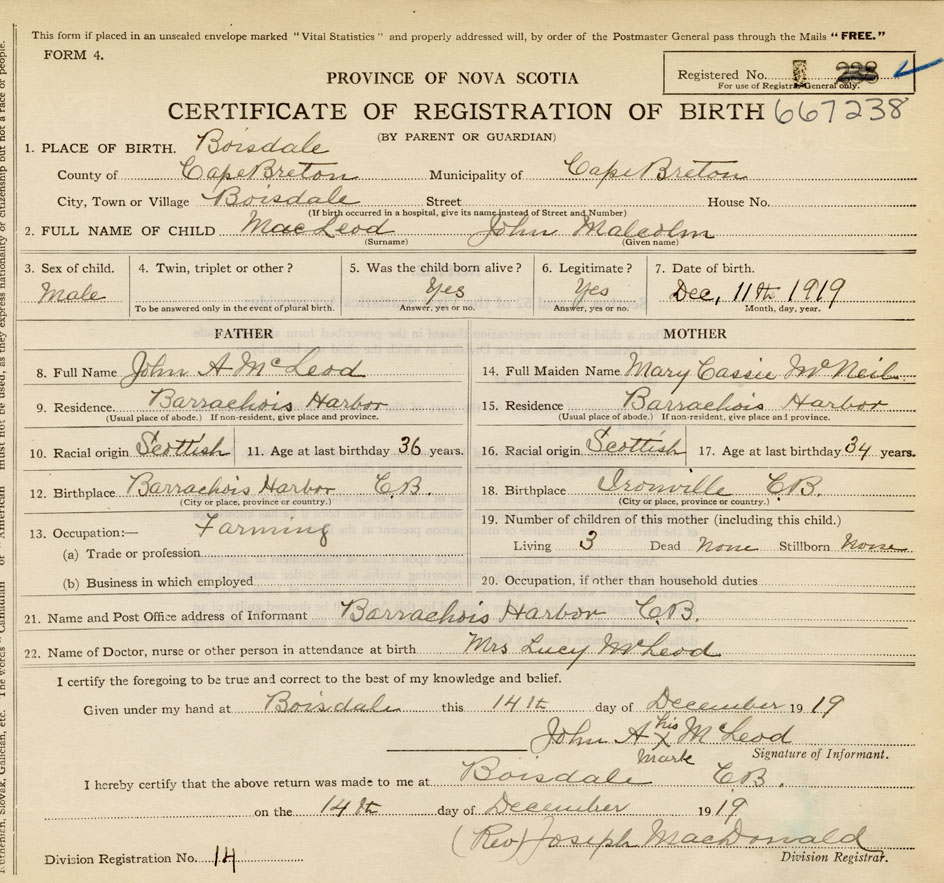 This form if placed in an unsealed envelope marked "Vital Statistics" and properly addressed will, by order of the Postmaster General pass through the Mails "FREE."
FORM 4.
Registered No. 238
For use of Registrar General only.
PROVINCE OF NOVA SCOTIA
CERTIFICATE OF REGISTRATION OF BIRTH 667238
(BY PARENT OR GUARDIAN)
1. PLACE OF BIRTH. Boisdale
County of Cape Breton Municipality of Cape Breton
City, Town or Village Boisdale Street House No.
(If birth occurred in a hospital, give its name instead of Street and Number)
2. FULL NAME OF CHILD MacLeod John Malcolm
(Surname) (Given name)
3. Sex of child. 4. Twin, triplet or other? 5. Was the child born alive? 6. Legitimate? 7. Date of birth.
Male Yes Yes Dec, 11th 1919
To be answered only in the event of plural birth. Answer, yes or no. Answer, yes or no. Month, day, year.
FATHER MOTHER
8. Full Name John A McLeod 14. Full Maiden Name Mary Cassie McNeil
9. Residence. Barrachois Harbor 15. Residence Barrachois Harbor
(Usual place of abode.) If non-resident, give place and province. (Usual place of abode.) If non-resident, give place and province.
10. Racial origin Scottish 11. Age at last birthday 36 years. 16. Racial origin Scottish 17. Age at last birthday 34 years.
12. Birthplace Barrachois Harbor C.B. 18. Birthplace Ironville C.B.
(City or place, province or country.) (City or place, province or country.)
13. Occupation:— Farming 19. Number of children of this mother (including this child.)
(a) Trade or profession Living 3 Dead None Stillborn None
(b) Business in which employed 20. Occupation, if other than household duties
21. Name and Post Office address of Informant Barrachois Harbor C.B.
22. Name of Doctor, nurse or other person in attendance at birth Mrs Lucy McLeod
I certify the foregoing to be true and correct to the best of my knowledge and belief.
Given under my hand at Boisdale this 14th day of December 1919
John A his X mark McLeod
Signature of Informant.
I hereby certify that the above return was made to me at Boisdale C.B.
on the 14th day of December 1919
(Rev) Joseph MacDonald
Division Registration No. 14 Division Registrar.